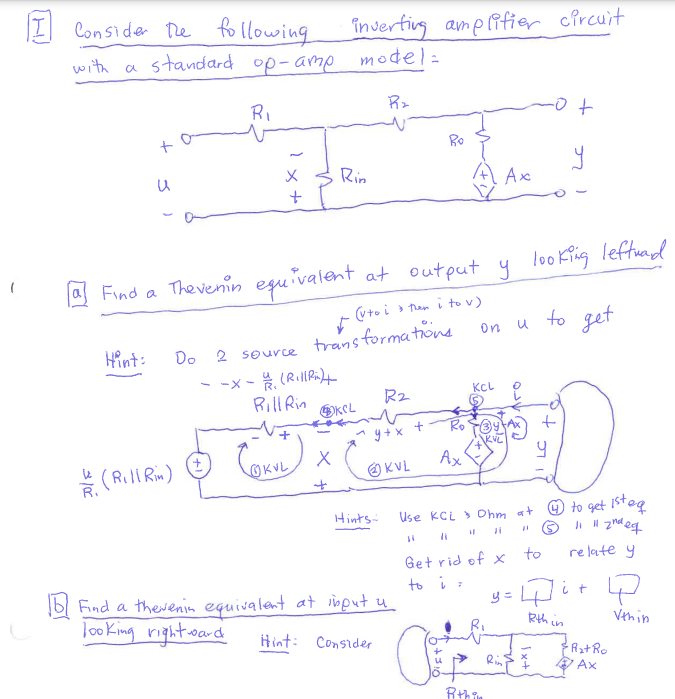 I Consider the following inverting amplifier circuit
with a standard op-amp model:
R1
R2
+
u
-
-
x
+
Rin
Ro
+
-
Ax
+
y
-
a Find a Thevenin equivalent at output y looking leftward
(v to i, then i to v)
Hint: Do 2 source transformations on u to get
- -x - u/R1 (R1||Rin) +
R1||Rin
④ KCL
R2
KCL
⑤
i
- +
- y+x +
Ro
③ y-Ax
KVL
+
u/R1 (R1||Rin)
+
-
① KVL
-
x
+
② KVL
Ax
+
-
y
-
Hints: Use KCL, Ohm at ④ to get 1st eq
" " " " ⑤ " " 2nd eq
Get rid of x to relate y
to i :
y = [ ] i + [ ]
Rth in
Vth in
b Find a thevenin equivalent at input u
looking rightward
Hint: Consider
R1
+
u
-
Rin
-
x
+
R2+Ro
Ax
Rthin